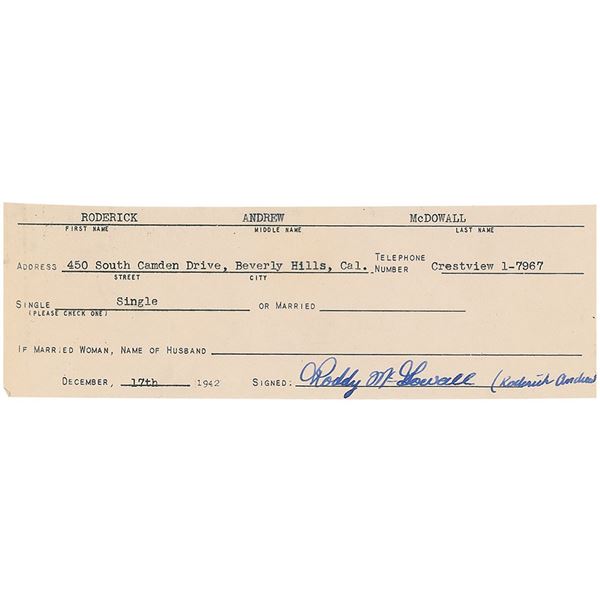 RODERICK ANDREW McDOWALL
FIRST NAME MIDDLE NAME LAST NAME
ADDRESS 450 South Camden Drive, Beverly Hills, Cal. TELEPHONE NUMBER Crestview 1-7967
STREET CITY
SINGLE Single OR MARRIED
(PLEASE CHECK ONE)
IF MARRIED WOMAN, NAME OF HUSBAND
DECEMBER, 17th 1942 SIGNED: Roddy McDowall (Roderick Andrew